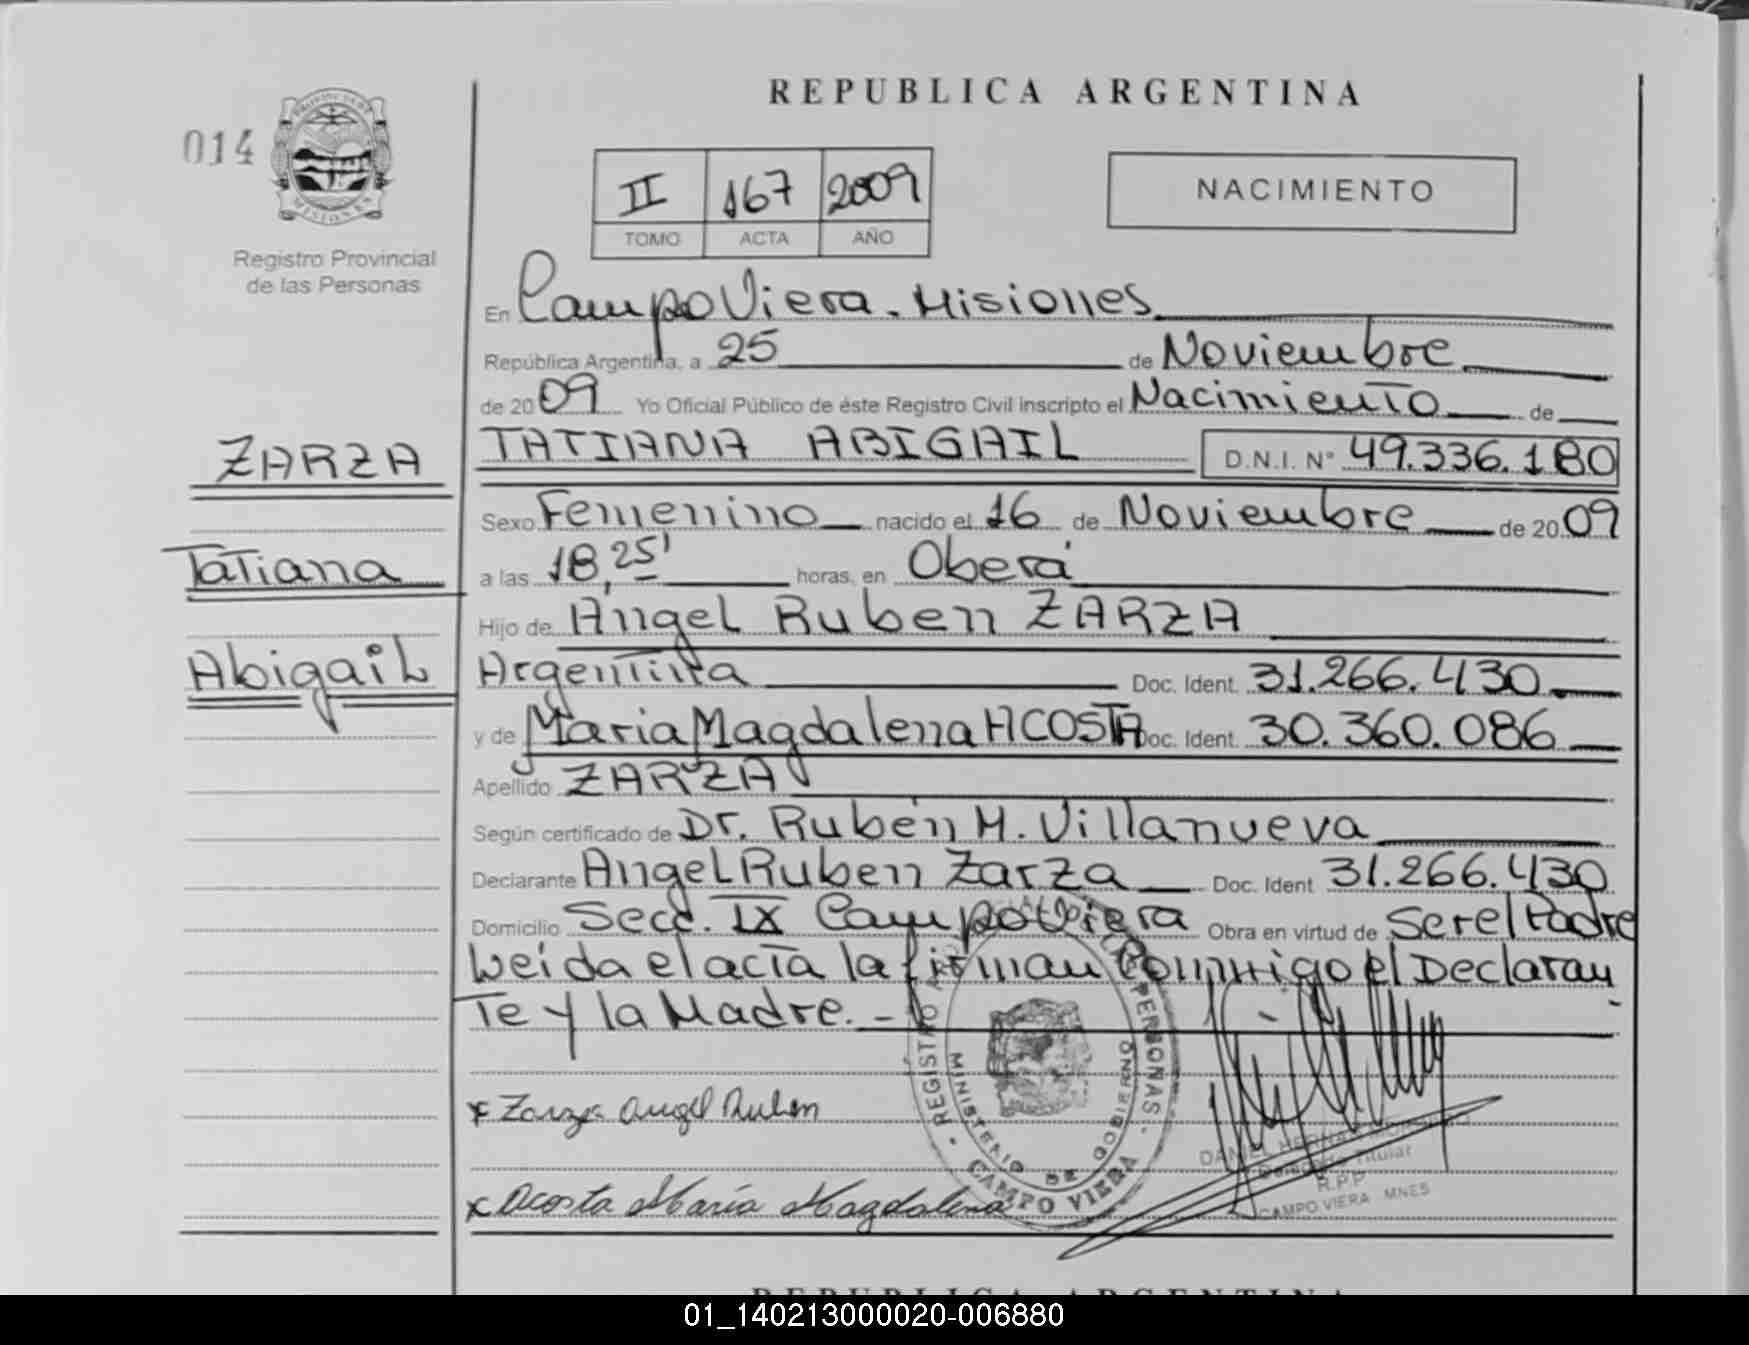 REPUBLICA ARGENTINA
014
PROVINCIA DE
MISIONES
Registro Provincial
de las Personas
II 167 2009
TOMO ACTA AÑO
NACIMIENTO
En Campo Viera. Misiones
República Argentina, a 25 de Noviembre
de 2009 Yo Oficial Público de éste Registro Civil inscripto el Nacimiento de
ZARZA
TATIANA ABIGAIL D.N.I. N° 49.336.180
Sexo Femenino nacido el 16 de Noviembre de 2009
Tatiana
a las 18,25' horas, en Oberá
Hijo de Angel Ruben ZARZA
Abigail
Argentina Doc. Ident. 31.266.430
y de Maria Magdalena ACOSTA Doc. Ident. 30.360.086
Apellido ZARZA
Según certificado de Dr. Rubén H. Villanueva
Declarante Angel Ruben Zarza Doc. Ident 31.266.430
Domicilio Secc. IX Campo Viera Obra en virtud de ser el Padre
Leida el acta la firman Conmigo el Declaran
Te y la Madre. -
REGISTRO PERSONAS
MINISTERIO DE GOBIERNO
CAMPO VIERA
x Zarza Angel Ruben
DANIEL HERNAN
Delegado Titular
R.P.P
CAMPO VIERA MNES
x Acosta María Magdalena
REPUBLICA ARGENTINA
01_140213000020-006880